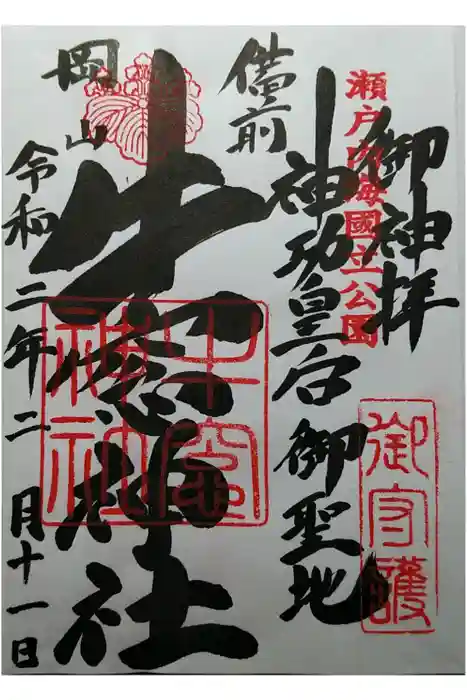 御神拝
瀬戸内海國立公園
御守護
備前
神功皇后御聖地
牛窓神社
牛窓神社
岡山
令和二年二月十一日